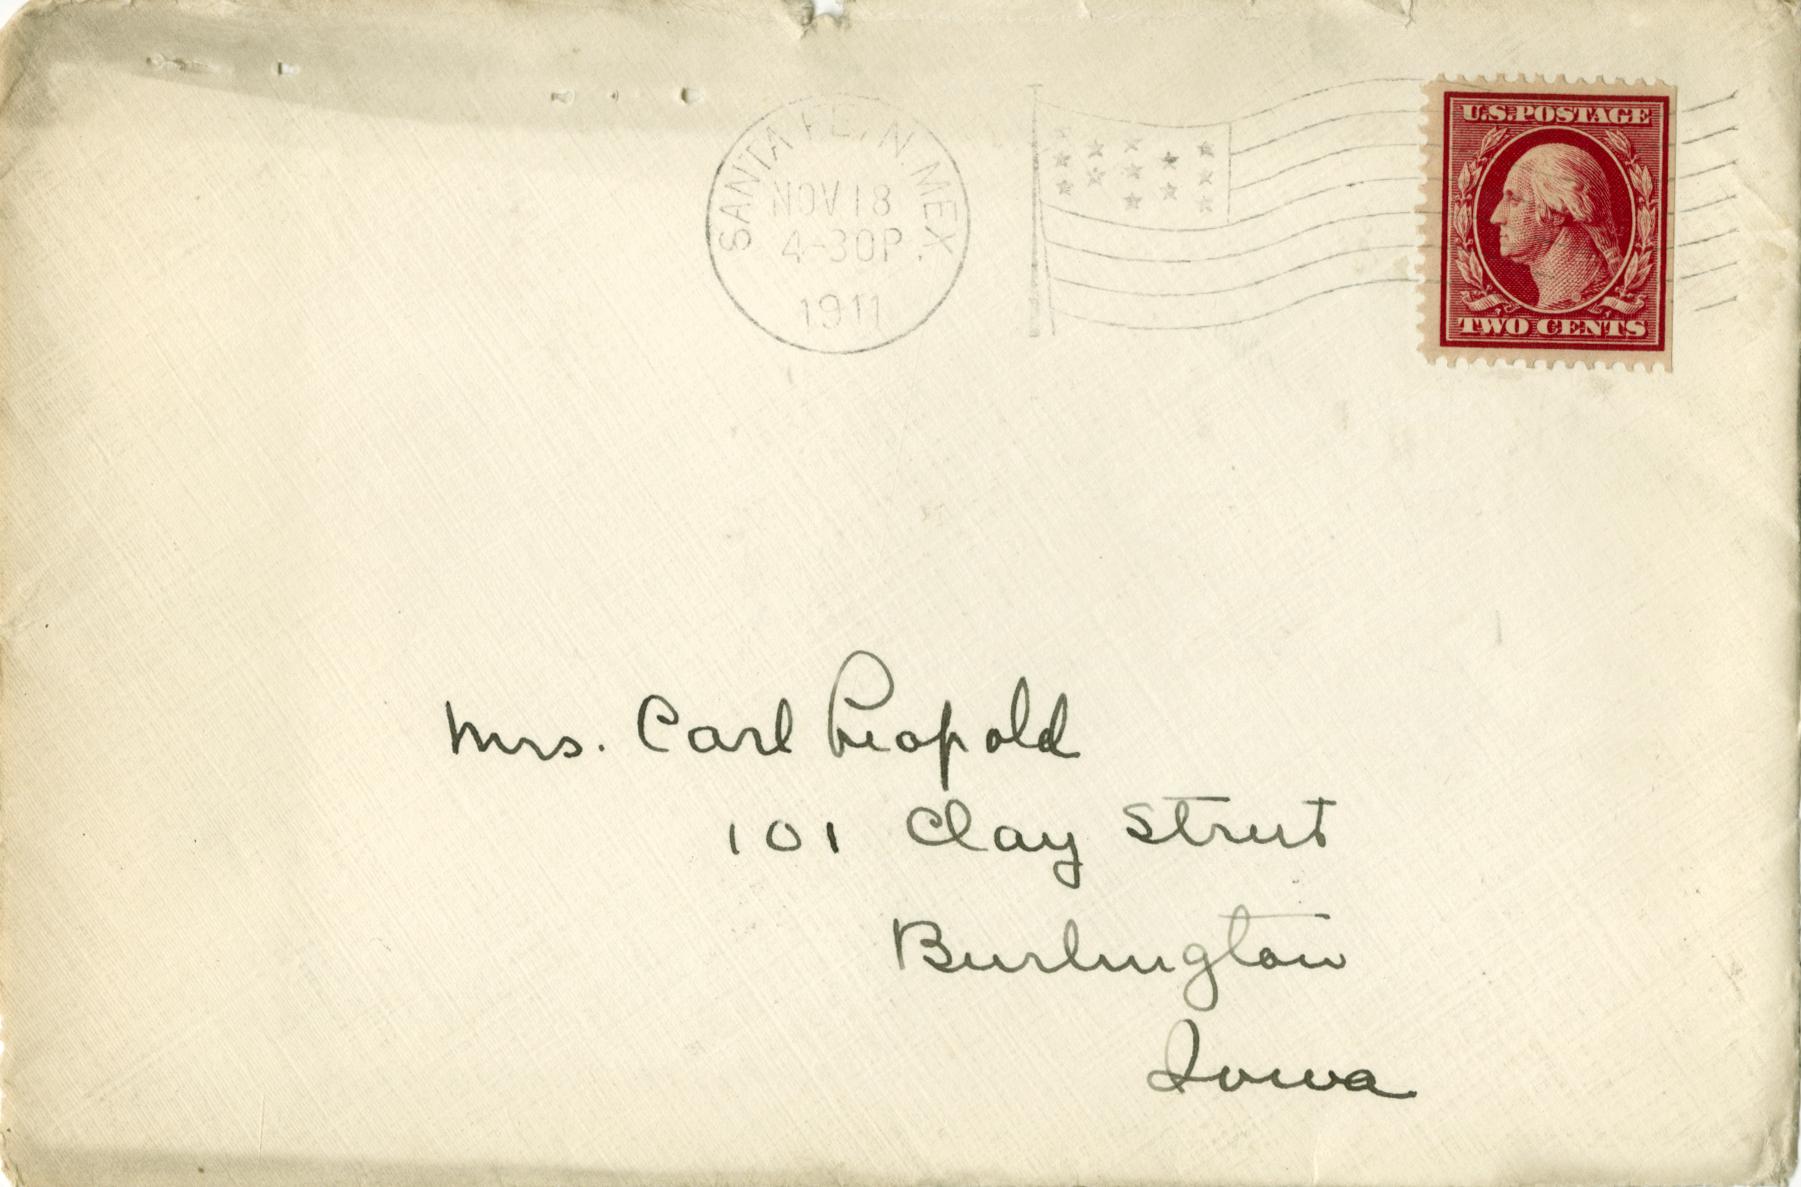 SANTA FE, N. MEX.
NOV 18
4-30P
1911
U.S. POSTAGE
TWO CENTS
Mrs. Carl Leopold
101 Clay Street
Burlington
Iowa